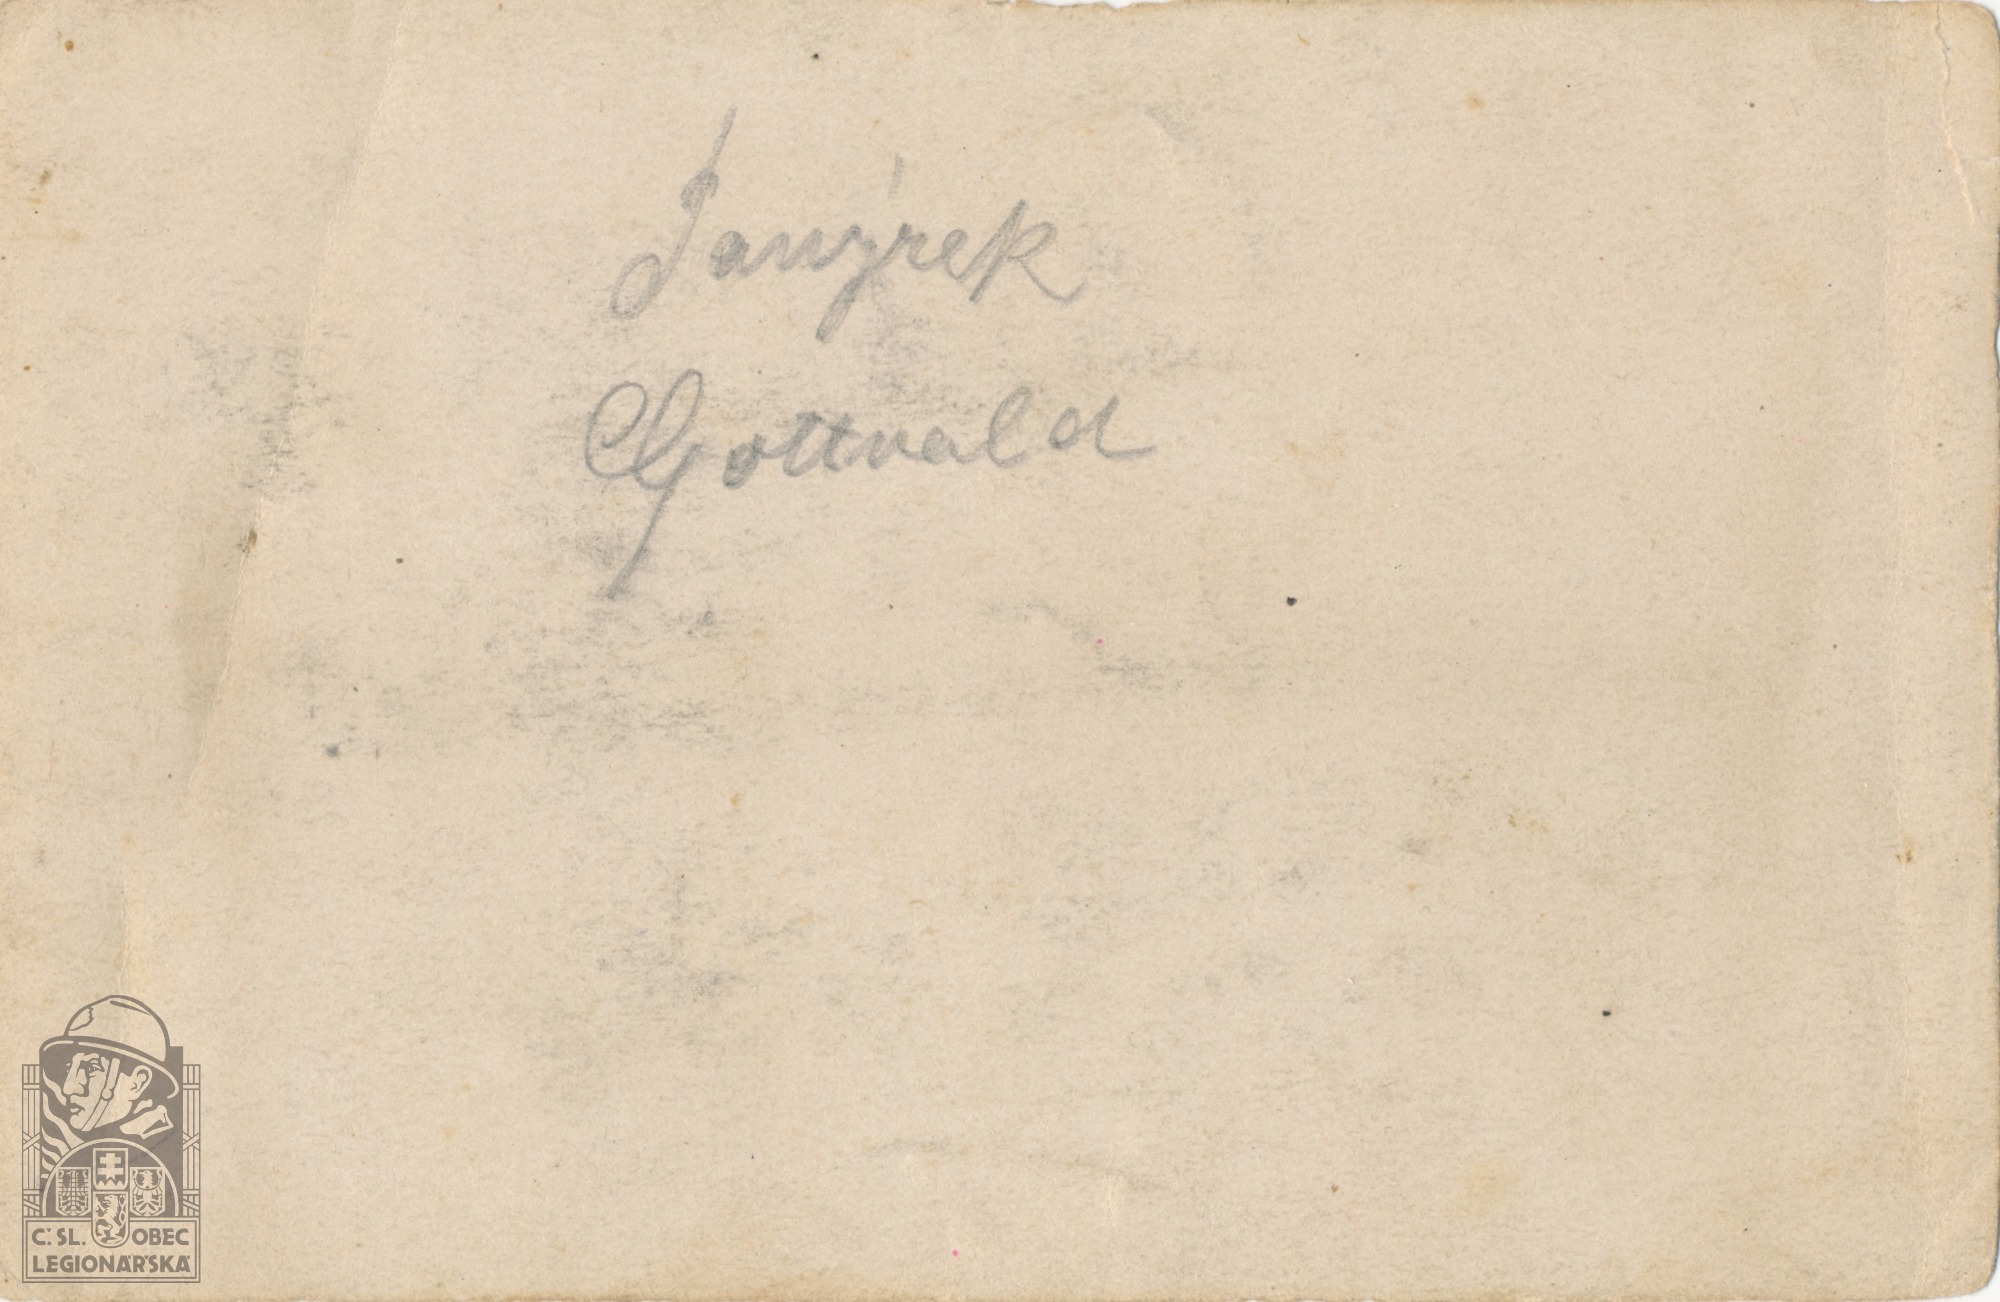 Janýrek
Gottvald
Č.SL. OBEC
LEGIONÁŘSKÁ